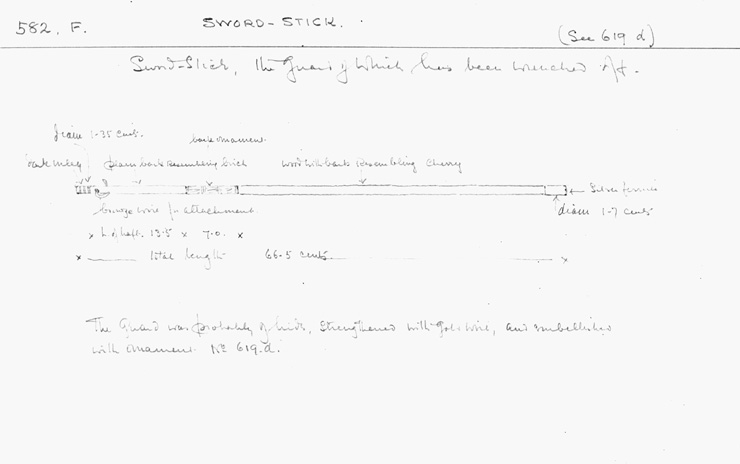 582. F.
SWORD-STICK.
(See 619 d)
Sword-Stick, the Guard of which has been wrenched off.
diam 1.35 cents.
bark ornament
bark inlay
plain bark resembling birch
wood with bark resembling cherry
Silver ferrule
bronze wire for attachment.
diam 1.7 cents
x L. of haft. 13.5 x 7.0. x
x total length 66.5 cents x
The Guard was probably of hide, strengthened with gold wire, and embellished
with ornament No 619.d.